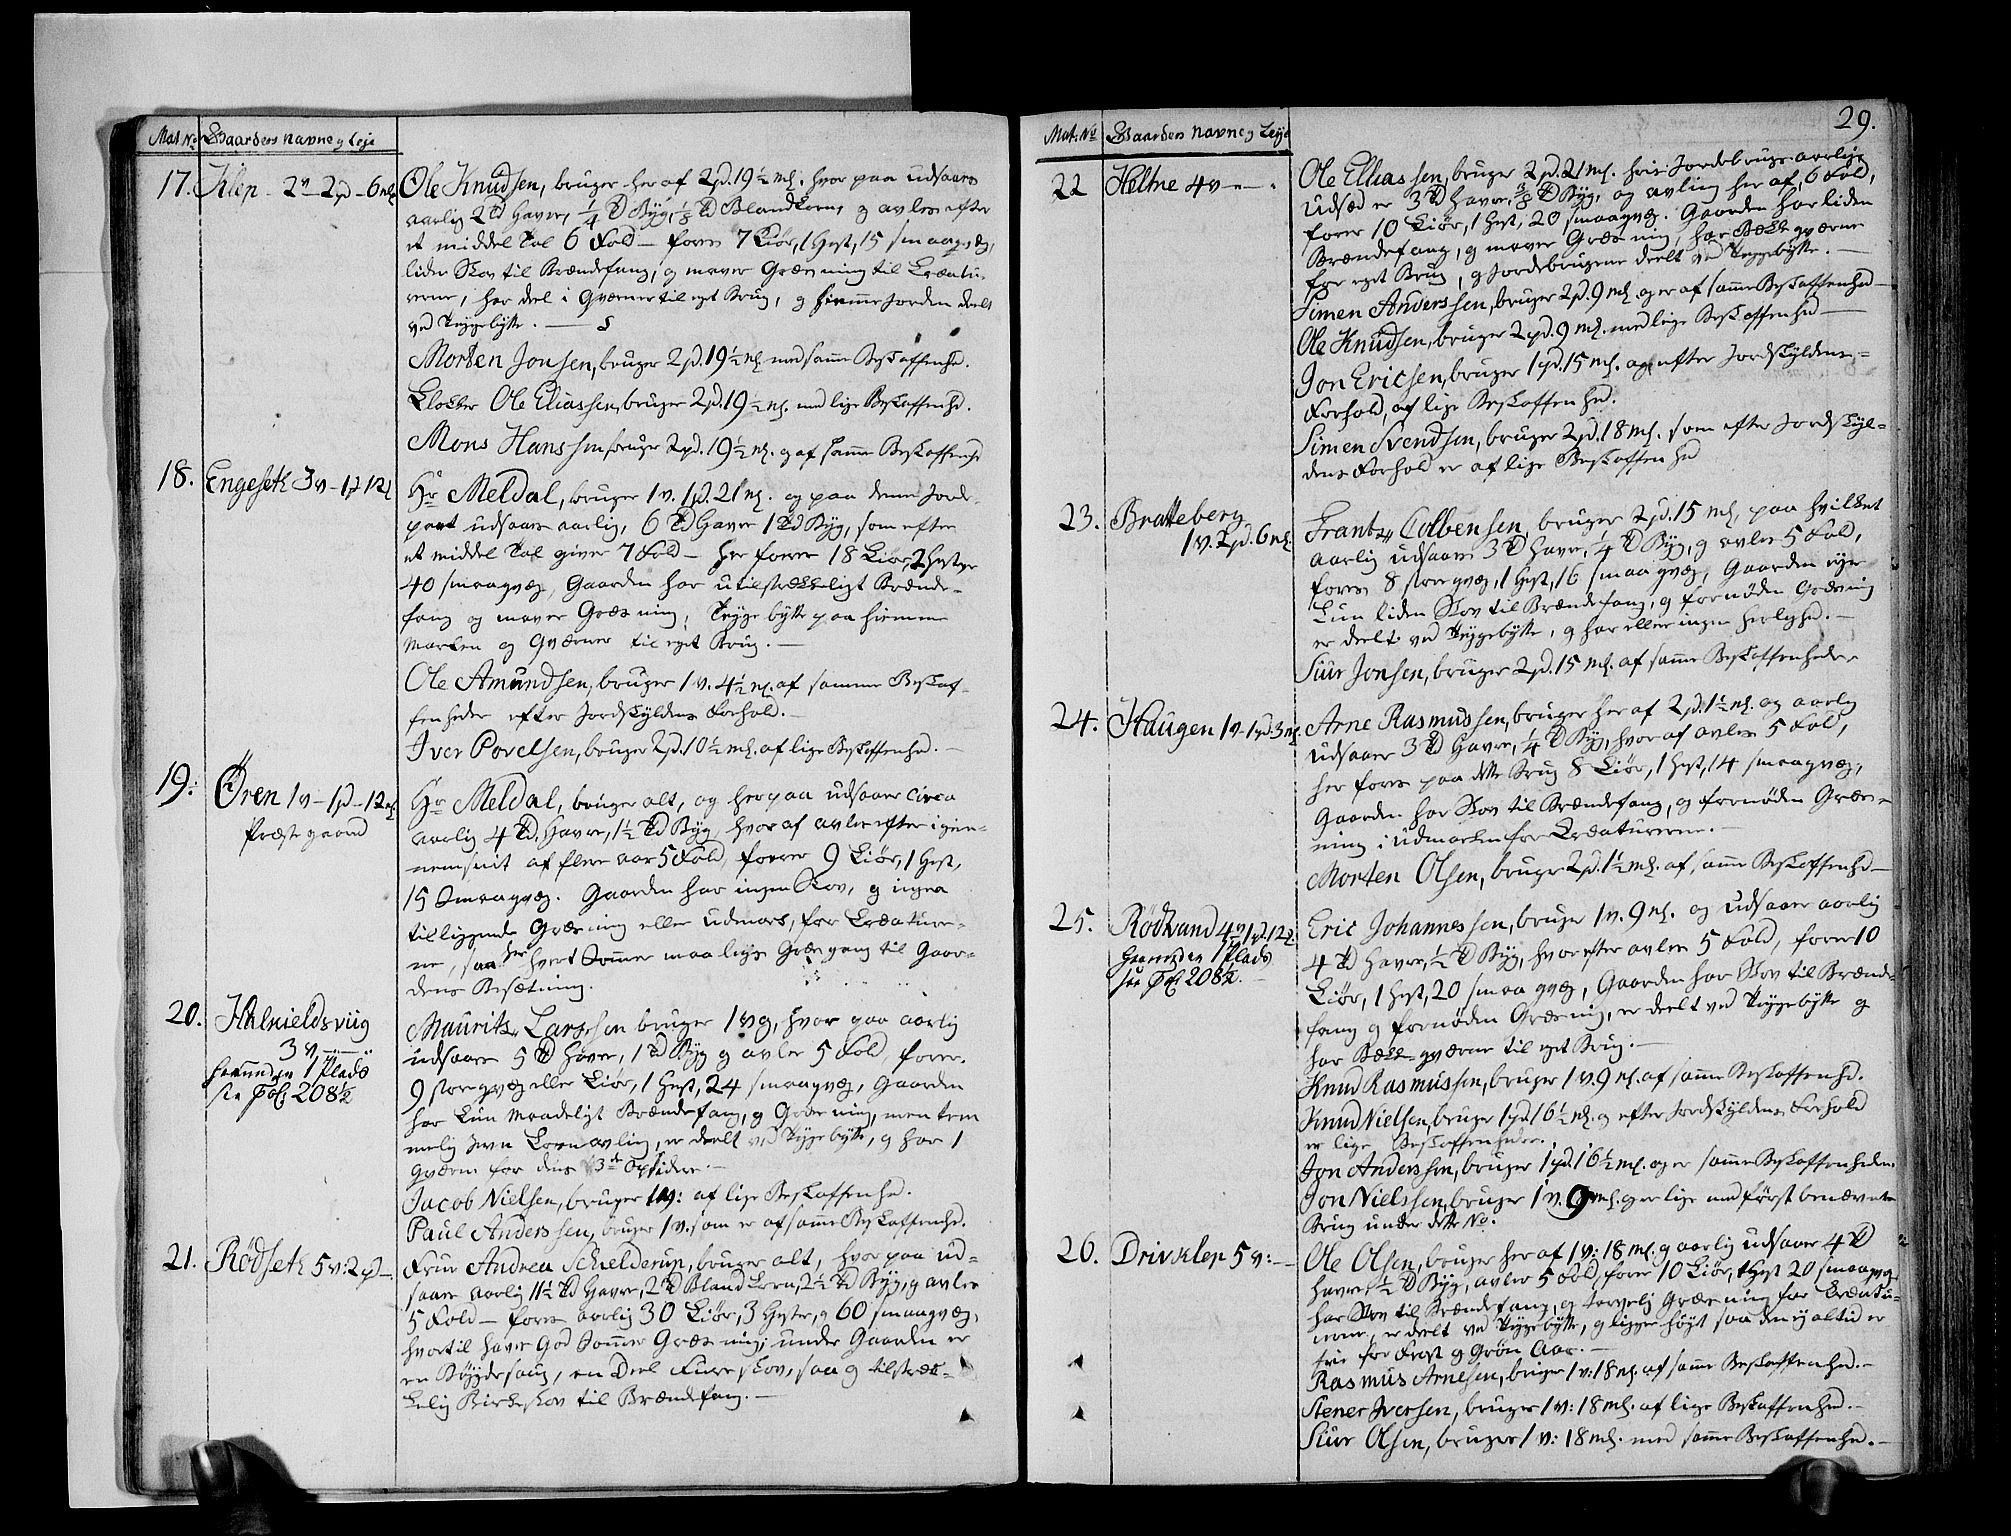 Mat. No Gaardens Navne og Leje
17. Klep - 2 v - 2 pd - 6 mk
Ole Knudsen, bruger her af 2 pd. 19 1/2 mk. hvor paa udsaaes
aarlig 2 Td Havre, 1/4 Td Byg, 1/8 Td Blandkorn, og avles efter
et middel Tal 6 Fold - fores 7 Kiør, 1 Hest, 15 smaaqvæg,
liden Skov til Brændefang, og maver Græsning til Creatu-
rerne, har deel i Qværner til eget Brug, og hiemme Jorden deelt
ved Teygebytte. —
Morten Jonsen, bruger 2 pd. 19 1/2 mk. med samme Beskaffenhed.
Klokker Ole Eliassen, bruger 2 pd. 19 1/2 mk. med lige Beskaffenhed.
Mons Hanssen, bruger 2 pd. 19 1/2 mk. og af samme Beskaffenhed
18. Engeseth 3 v - 1 pd 12 mk
Hr Meldal, bruger 1 v. 1 pd. 21 mk. og paa denne Jorde-
part udsaaes aarlig, 6 Td Havre 1 Td Byg, som efter
et middel Tal giver 7 Fold - her fores 18 Kiør, 2 Hester
40 smaaqvæg, Gaarden har utilstrækkeligt Brænde-
fang og maver Græsning, Teyge bytte paa hiemme
Marken og Qværner til eget Brug. —
Ole Amundsen, bruger 1 v. 4 1/2 mk. af samme Beskaf-
fenheder efter Jordskyldens Forhold. —
Iver Povelsen, bruger 2 pd. 10 1/2 mk. af lige Beskaffenhed. —
19. Øren 1 v - 1 pd - 12 mk
Præstegaard
Hr Meldal, bruger alt, og her paa udsaaes circa
aarlig 4 Td. Havre, 1 1/2 Td Byg, hvor af avles efter igien-
nemsnit af flere aar 5 Fold, forer 9 Kiør, 1 Hest,
15 Smaaqvæg. Gaarden har ingen Skov, og ingen
tilliggende Græsning eller udmark, for Creature-
ne, saa der hvert Sommer maa lejes Græsgang til Gaar-
dens Besætning.
20. Halkieldsviig
3 v, —
herunder 1 Plads
see Fol. 208 1/2
Maurits Larssen bruger 1 vog, hvor paa aarlig
udsaaes 5 Td Havre, 1 Td Byg og avles 5 Fold, forer
9 storqvæg eller Kiør, 1 Hest, 24 smaaqvæg, Gaarden
har kun Maadeligt Brændefang, og Græsning, men tem
melig Kornavling, er deelt ved Teygebytte, og har 1
Qværn for dens 3de Opsidere. —
Jacob Nielsen, bruger 1 v: af lige Beskaffenhed.
Paul Anderssen, bruger 1 v. som er af samme Beskaffenhed.
21. Rødseth 5 v: 2 pd —
Frue Andrea Schielderup, bruger alt, hvor paa ud-
saaes aarlig 11 1/2 Td Havre, 2 Td Blandkorn, 2 1/2 Td Byg, og avles
5 Fold - fores aarlig 30 Kiør, 3 Hester, og 60 smaaqvæg,
hvortil haves God Sommer Græsning; under Gaarden er
en Bøygdesaug, en Deel Furreskov, saa og tilstræk-
kelig Birkeskov til Brændefang. —
29.
Mat. No Gaardens Navne og Leje
22 Heltne 4 v - - .
Ole Elliassen, bruger 2 pd. 21 mk. hvis Jordebrugs aarlige
udsæd er 3 Td Havre, 3/8 Td Byg, og avling her af, 6 Fold,
forer 10 Kiør, 1 Hest, 20 smaaqvæg. Gaarden har liden
Brændefang, og maver Græsning, har Bække qværne
for eget Brug, og Jordebrugene deelt ved Teygebytte. —
Simen Anderssen, bruger 2 pd. 9 mk og er af samme Beskaffenhed —
Ole Knudsen, bruger 2 pd. 9 mk. med lige Beskaffenhed —
Jon Ericsen, bruger 1 pd. 15 mk. og efter Jordskyldens-
Forhold, af lige Beskaffenhed.
Simen Svendsen, bruger 2 pd. 18 mk. som efter Jordskyl-
dens Forhold er af lige Beskaffenhed
23. Bratteberg
1 v. 2 pd. 6 mk.
Frantz Colbensen, bruger 2 pd. 15 mk, paa hvilket
aarlig udsaaes 3 Td Havre, 1/4 Td Byg, og avles 5 Fold,
fores 8 storqvæg, 1 Hest, 16 smaaqvæg, Gaarden ejer
kun liden Skov til Brændefang, og fornøden Græsning
er deelt ved Teygebytte, og har ellers ingen herlighed. —
Siur Jonsen, bruger 2 pd. 15 mk. af samme Beskaffenheder
24. Haugen 1 v - 1 pd. 3 mk.
Arne Rasmussen, bruger her af 2 pd. 1 1/2 mk. og aarlig
udsaaer 3 Td Havre, 1/4 Td Byg, hvor af avles 5 Fold,
her fores paa dette Brug 8 Kiør, 1 Hest, 14 smaaqvæg,
Gaarden har Skov til Brændefang, og fornøden Græs-
ning i udmarken for Creaturerne. —
Morten Olsen, bruger 2 pd. 1 1/2 mk. af samme Beskaffenhed —
25. Rödsand 4 v 1 pd. 12 mk
herunder 1 Plads
see Fol. 208 1/2.
Eric Johannessen, bruger 1 v. 9 mk. og udsaaer aarlig
4 Td Havre, 1/2 Td Byg, hvorefter avles 5 Fold, forer 10
Kiør, 1 Hest, 20 smaaqvæg, Gaarden har Skov til Brænde-
fang og fornøden Græsning, er deelt ved Teygebytte og
har Bække-qværne til eget Brug. —
Knud Rasmussen, bruger 1 v. 9 mk. af samme Beskaffenhed.
Knud Nielsen, bruger 1 pd. 16 1/2 mk. og efter Jordskyldens Forhold
er lige Beskaffenheder.
Jon Anderssen, bruger 1 pd. 16 1/2 mk. og er samme Beskaffenheder.
Jon Nielssen, bruger 1 v. 9 mk. og er lige med først benævnte
Brug under dette No.
26. Drivklep 5 v: —
Ole Olsen, bruger her af 1 v: 18 mk. og aarlig udsaaer 4 Td
Havre, 1/2 Td Byg, avles 5 Fold, forer 10 Kiør, 1 Hest 20 smaaqvæg
har Skov til Brændefang, og Tarvelig Græsning for Creatu-
rerne, er deelt ved Teygebytte, og ligger høyt saa den ej altid er
frie for Frost og Grøn Aar. —
Rasmus Arnesen, bruger 1 v: 18 mk. af samme Beskaffenhed. —
Stener Iversen, bruger 1 v: 18 mk. af lige Beskaffenhed. —
Siur Olsen, bruger 1 v: 18 mk. med samme Beskaffenhed. —